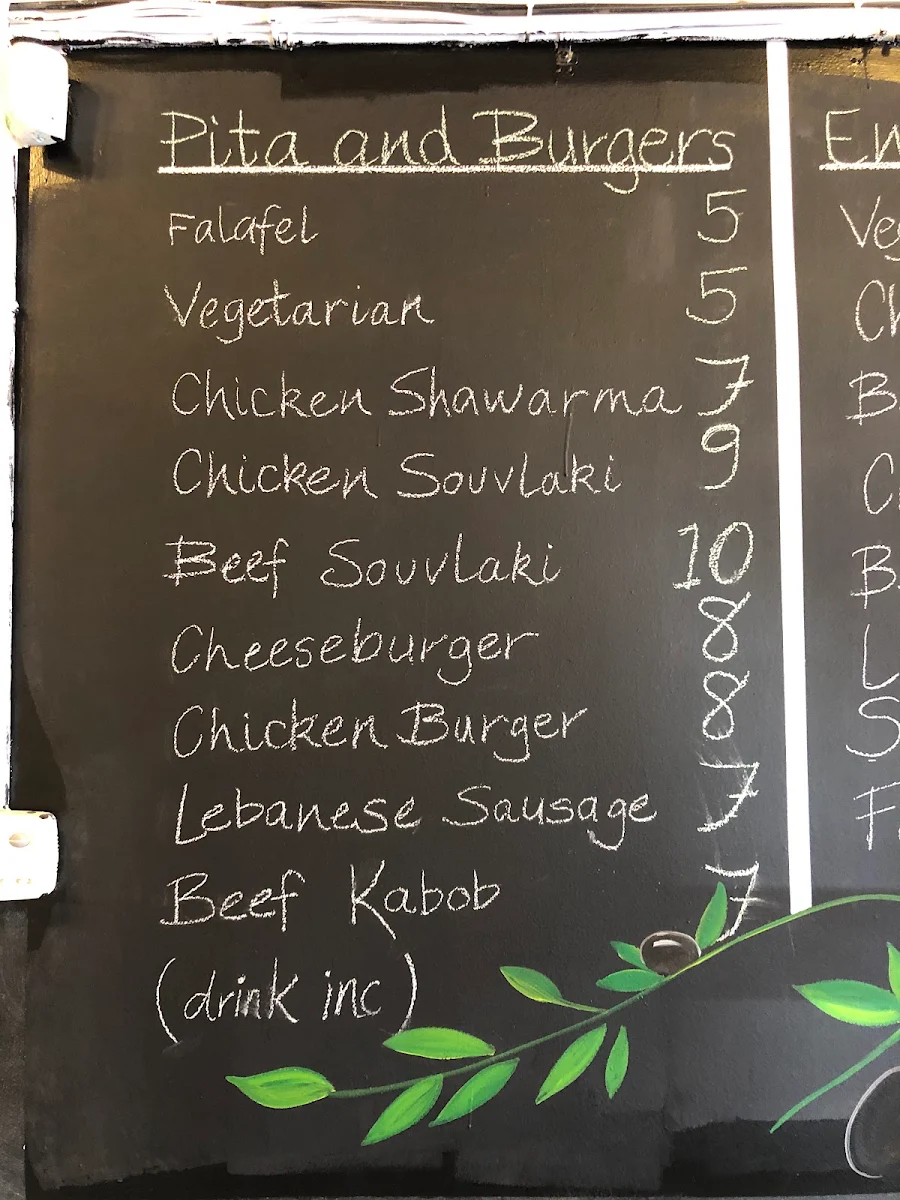 Pita and Burgers
Falafel 5
Vegetarian 5
Chicken Shawarma 7
Chicken Souvlaki 9
Beef Souvlaki 10
Cheeseburger 8
Chicken Burger 8
Lebanese Sausage 7
Beef Kabob 7
(drink inc)